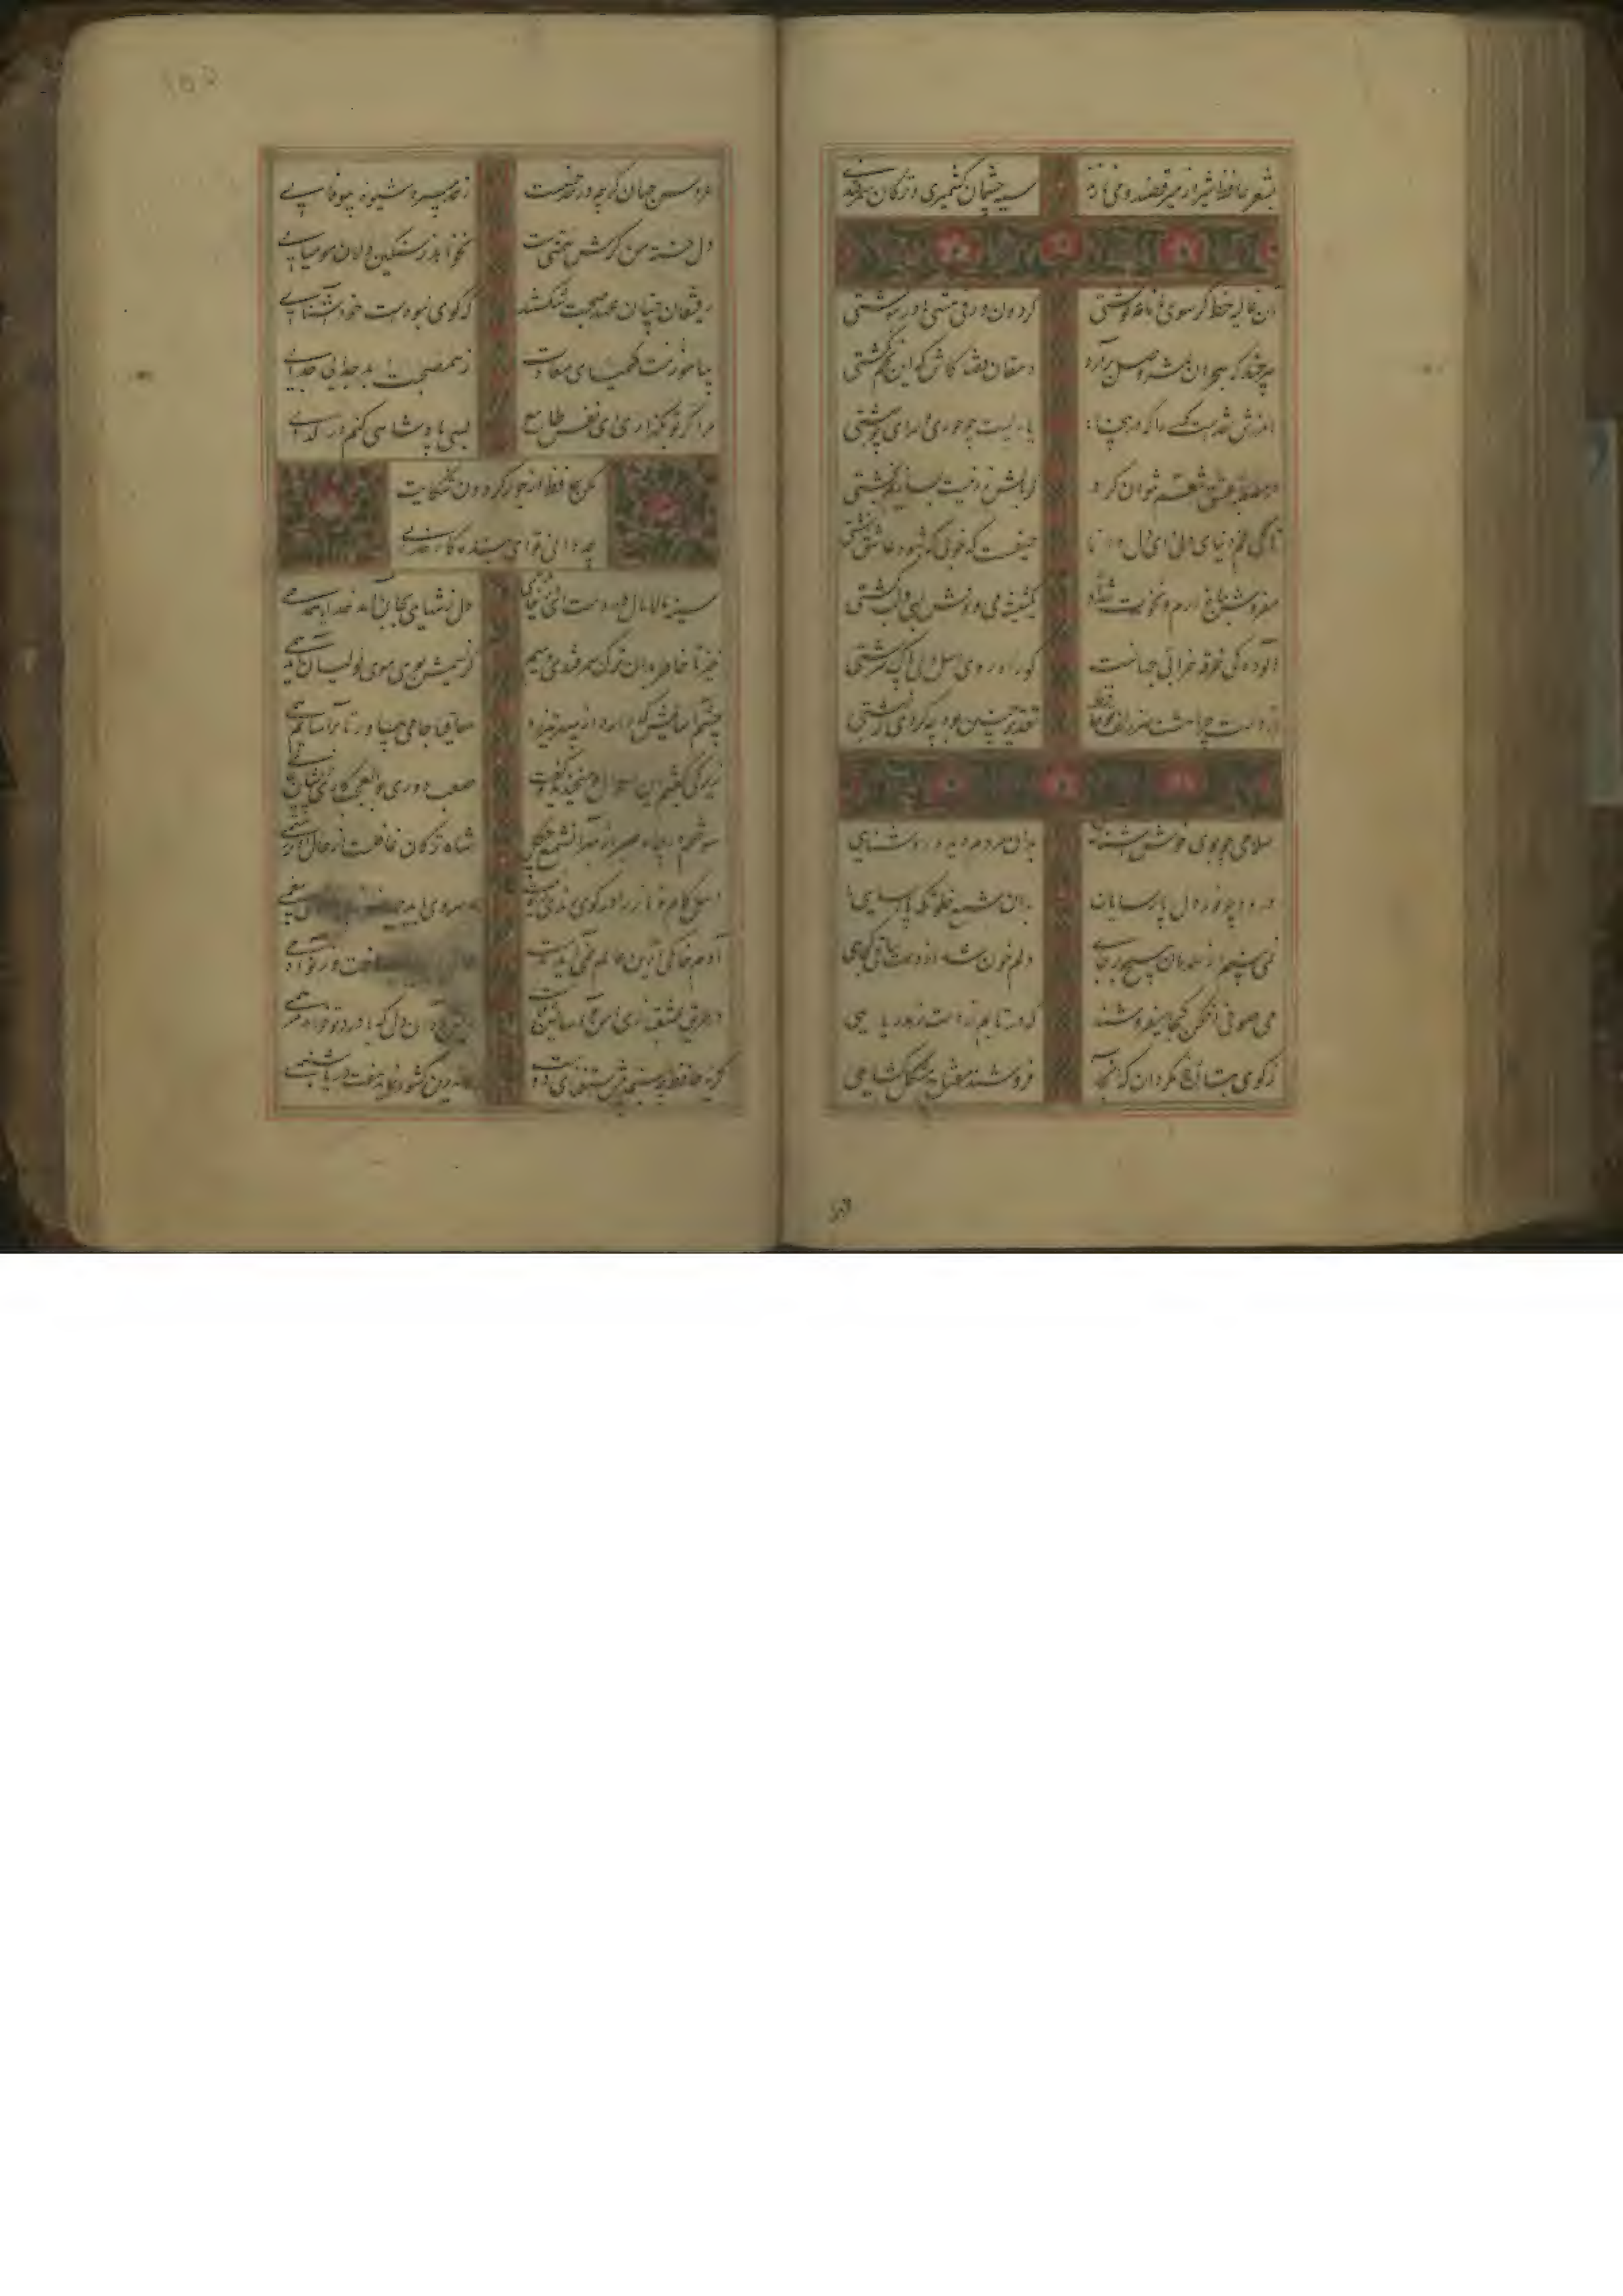 بشعر حافظ شیراز میرقصند و می نازند
سیه چشمان کشمیری و ترکان سمرقندی
آن غالیه خط گر سوی ما نامه نوشتی
گردون ورق هستی ما در ننوشتی
هر چند که هجران ثمر وصل برآرد
دهقان قضا کاش که این تخم نکشتی
آمرزش نقدست کسی را که در اینجا
یاریست چو حوری و سرای چو بهشتی
در مصطبه عشق تنعم نتوان کرد
گر بالش زر نیست بسازیم بخشتی
تا کی غم دنیای دنی ای دل دانا
حیفست که خوبی که شود عاشق زشتی
مفروش بباغ ارم و نخوت شداد
یک شیشه می و نوش لبی و لب کشتی
آلوده گی خرقه خرابی جهانست
کو راه روی اهل دلی پاک سرشتی
از دست چرا هشت سر زلف تو حافظ
تقدیر چنین بود چه کردی که نهشتی
سلامی چو بوی خوش آشنایی
بدان مردم دیده روشنایی
درودی چو نور دل پارسایان
بدان شمع خلوتگه پارسایی
نمی بینم از همدمان هیچ بر جای
دلم خون شد از غصه ساقی کجایی
می صوفی افکن کجا میفروشند
که در تابم از دست زهد ریایی
ز کوی مغان رخ مگردان که آنجا
فروشند مفتاح مشکل گشایی
عروس جهان گرچه در حد حسنست
ز حد میبرد شیوه بیوفایی
دل خسته من گرش همتی هست
نخواهد ز سنگین دلان مومیایی
رفیقان چنان عهد صحبت شکستند
که گویی نبودست خود آشنایی
بیاموزمت کیمیای سعادت
ز هم صحبت بد جدایی جدایی
مرا گر تو بگذاری ای نفس طامع
بسی پادشاهی کنم در گدایی
مکن حافظ از جور گردون شکایت
چه دانی تو ای بنده کار خدایی
سینه مالامال درد است ای دریغا مرهمی
دل ز تنهایی بجان آمد خدا را همدمی
خیز تا خاطر بدان ترک سمرقندی دهیم
کز نسیمش بوی جوی مولیان آید همی
چشم آسایش که دارد از سپهر تیزرو
ساقیا جامی بیاور تا برآسایم دمی
زیرکی را گفتم این احوال بین خندید و گفت
صعب دوری بوالعجب کاری پریشان عالمی
سوختم در چاه صبر از بهر آن شمع چگل
شاه ترکان غافلست از حال ما کو رستمی
اهل کام و ناز را در کوی رندی راه نیست
ره روی باید
آدمی خاکی درین عالم نمی آید بدست
عالمی ساخت وز نو آدمی
در طریق عشقبازی امن و آسایش بلاست
ریش باد آن دل که با درد تو خواهد مرهمی
گریه حافظ چه سنجد پیش استغنای دوست
کاندرین کشور نماید هفت دریا شبنمی